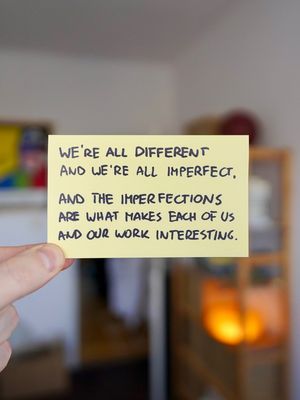 WE'RE ALL DIFFERENT
AND WE'RE ALL IMPERFECT.
AND THE IMPERFECTIONS
ARE WHAT MAKES EACH OF US
AND OUR WORK INTERESTING.